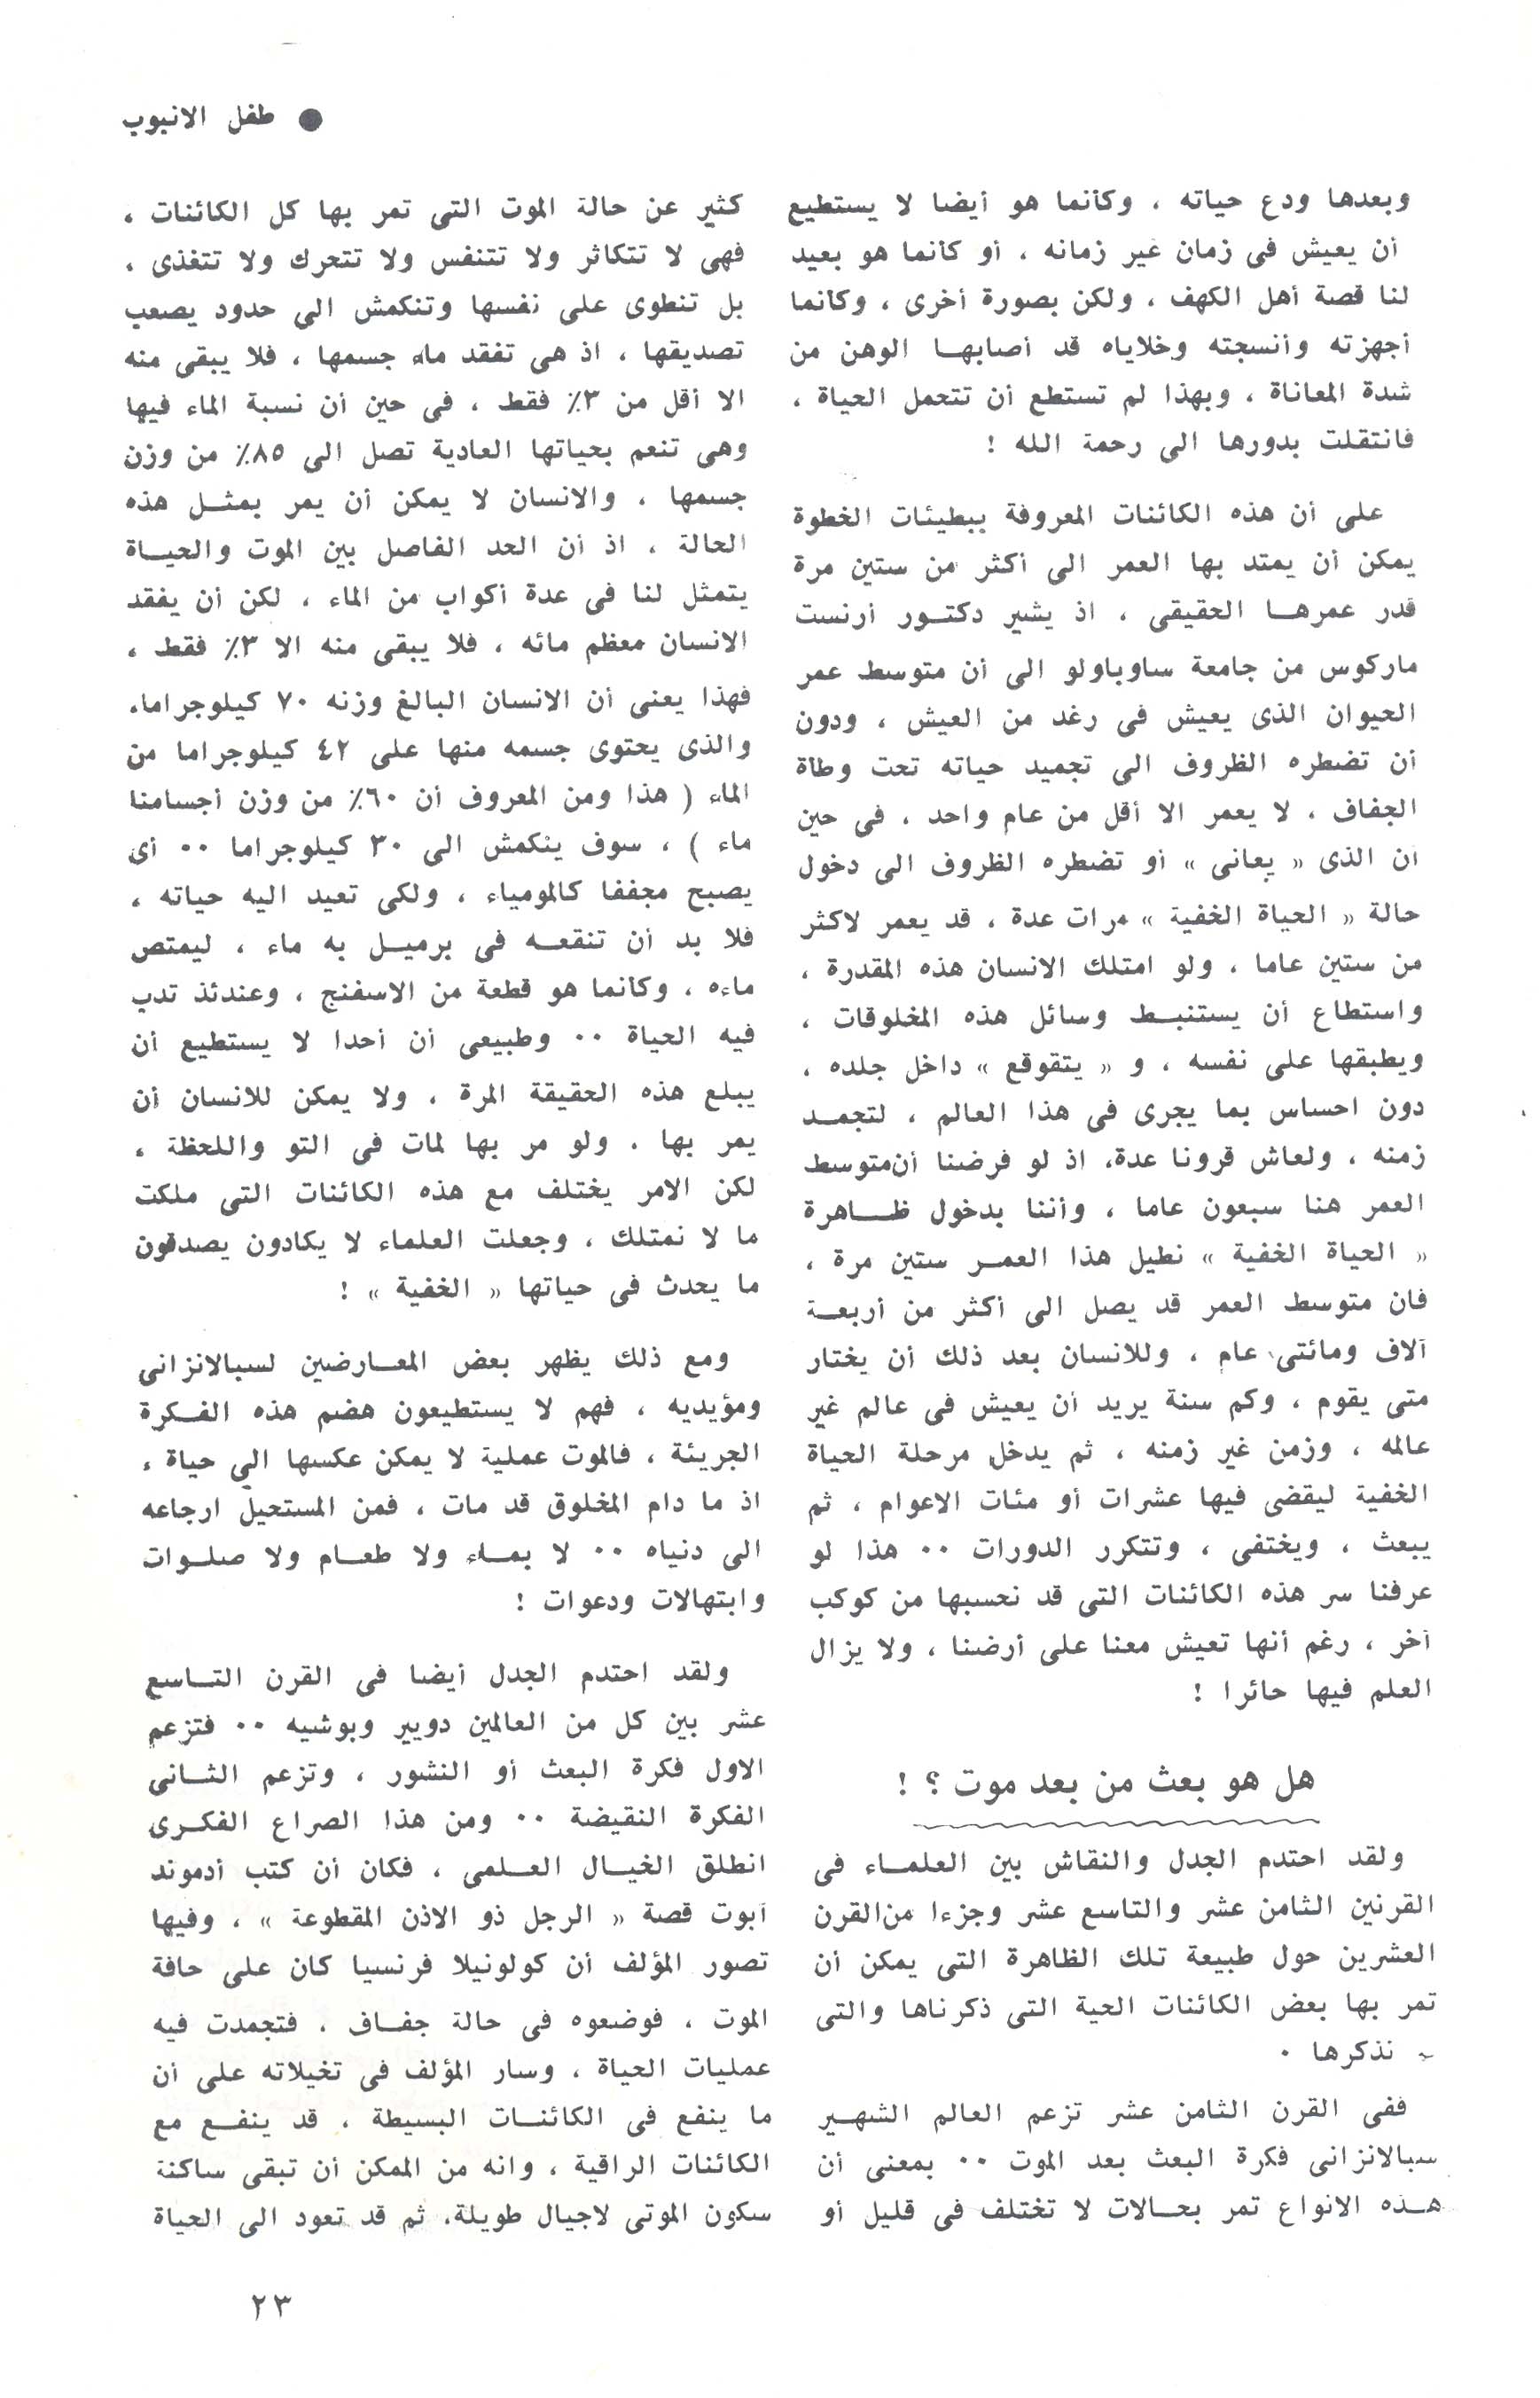 ● طفل الانبوب
وبعدها ودع حياته ، وكأنما هو أيضا لا يستطيع
أن يعيش فى زمان غير زمانه ، أو كأنما هو بعيد
لنا قصة أهل الكهف ، ولكن بصورة أخرى ، وكأنما
أجهزته وأنسجته وخلاياه قد أصابهـا الوهن من
شدة المعاناة ، وبهذا لم تستطع أن تتحمل الحياة ،
فانتقلت بدورها الى رحمة الله !
على أن هذه الكائنات المعروفة ببطيئات الخطوة
يمكن أن يمتد بها العمر الى أكثر من ستين مرة
قدر عمرهـا الحقيقى ، اذ يشير دكتـور أرنست
ماركوس من جامعة ساوباولو الى أن متوسط عمر
الحيوان الذى يعيش فى رغد من العيش ، ودون
أن تضطره الظروف الى تجميد حياته تحت وطأة
الجفاف ، لا يعمر الا أقل من عام واحد ، فى حين
أن الذى « يعانى » أو تضطره الظروف الى دخول
حالة « الحياة الخفية » مرات عدة ، قد يعمر لاكثر
من ستين عاما ، ولو امتلك الانسان هذه المقدرة ،
واستطاع أن يستنبـط وسائل هذه المخلوقات ،
ويطبقها على نفسه ، و « يتقوقع » داخل جلده ،
دون احساس بما يجرى فى هذا العالم ، لتجمـد
زمنه ، ولعاش قرونا عدة، اذ لو فرضنا أن متوسط
العمر هنا سبعون عاما ، وأننا بدخول ظـاهرة
« الحياة الخفية » نطيل هذا العمـر ستين مرة ،
فان متوسط العمر قد يصل الى أكثر من أربعـة
آلاف ومائتى عام ، وللانسان بعد ذلك أن يختار
متى يقوم ، وكم سنة يريد أن يعيش فى عالم غير
عالمه ، وزمن غير زمنه ، ثم يدخل مرحلة الحياة
الخفية ليقضى فيها عشرات أو مئات الاعوام ، ثم
يبعث ، ويختفى ، وتتكرر الدورات ٠٠ هذا لو
عرفنا سر هذه الكائنات التى قد نحسبها من كوكب
آخر ، رغم أنها تعيش معنا على أرضنا ، ولا يزال
العلم فيها حائرا !
هل هو بعث من بعد موت ؟ !
ولقد احتدم الجدل والنقاش بين العلمـاء فى
القرنين الثامن عشر والتاسع عشر وجزءا من القرن
العشرين حول طبيعة تلك الظاهرة التى يمكن أن
تمر بها بعض الكائنات الحية التى ذكرناها والتى
نذكرها ٠
ففى القرن الثامن عشر تزعم العالم الشهـير
سبالانزانى فكرة البعث بعد الموت ٠٠ بمعنى أن
هـذه الانواع تمر بحـالات لا تختلف فى قليل أو
كثير عن حالة الموت التى تمر بها كل الكائنات ،
فهى لا تتكاثر ولا تتنفس ولا تتحرك ولا تتغذى ،
بل تنطوى على نفسها وتنكمش الى حدود يصعب
تصديقها ، اذ هى تفقد ماء جسمها ، فلا يبقى منه
الا أقل من ٣٪ فقط ، فى حين أن نسبة الماء فيها
وهى تنعم بحياتها العادية تصل الى ٨٥٪ من وزن
جسمها ، والانسان لا يمكن أن يمر بمثـل هذه
الحالة ، اذ أن الحد الفاصل بين الموت والحيـاة
يتمثل لنا فى عدة أكواب من الماء ، لكن أن يفقد
الانسان معظم مائه ، فلا يبقى منه الا ٣٪ فقط ،
فهذا يعنى أن الانسان البالغ وزنه ٧٠ كيلوجراما،
والذى يحتوى جسمه منها على ٤٢ كيلوجراما من
الماء ( هذا ومن المعروف أن ٦٠٪ من وزن أجسامنا
ماء ) ، سوف ينكمش الى ٣٠ كيلوجراما ٠٠ أى
يصبح مجففا كالمومياء ، ولكى تعيد اليه حياته ،
فلا بد أن تنقعـه فى برميـل به ماء ، ليمتص
ماءه ، وكأنما هو قطعة من الاسفنج ، وعندئذ تدب
فيه الحياة ٠٠ وطبيعى أن أحدا لا يستطيع أن
يبلع هذه الحقيقة المرة ، ولا يمكن للانسان أن
يمر بها ، ولو مر بها لمات فى التو واللحظة ،
لكن الامر يختلف مع هذه الكائنات التى ملكت
ما لا نمتلك ، وجعلت العلماء لا يكادون يصدقون
ما يحدث فى حياتها « الخفية » !
ومع ذلك يظهر بعض المعـارضين لسبالانزانى
ومؤيديه ، فهم لا يستطيعون هضم هذه الفـكرة
الجريئة ، فالموت عملية لا يمكن عكسها الى حياة ،
اذ ما دام المخلوق قد مات ، فمن المستحيل ارجاعه
الى دنياه ٠٠ لا بمـاء ولا طعـام ولا صلـوات
وابتهالات ودعوات !
ولقد احتدم الجدل أيضا فى القرن التـاسع
عشر بين كل من العالمين دويير وبوشيه ٠٠ فتزعم
الاول فكرة البعث أو النشور ، وتزعم الثـانى
الفكرة النقيضة ٠٠ ومن هذا الصراع الفكـرى
انطلق الخيـال العـلمى ، فكان أن كتب أدموند
أبوت قصة « الرجل ذو الاذن المقطوعة » ، وفيها
تصور المؤلف أن كولونيلا فرنسيا كان على حافة
الموت ، فوضعوه فى حالة جفـاف ، فتجمدت فيه
عمليات الحياة ، وسار المؤلف فى تخيلاته على أن
ما ينفع فى الكائنـات البسيطة ، قد ينفـع مع
الكائنات الراقية ، وانه من الممكن أن تبقى ساكنة
سكون الموتى لاجيال طويلة، ثم قد تعود الى الحياة
٢٣